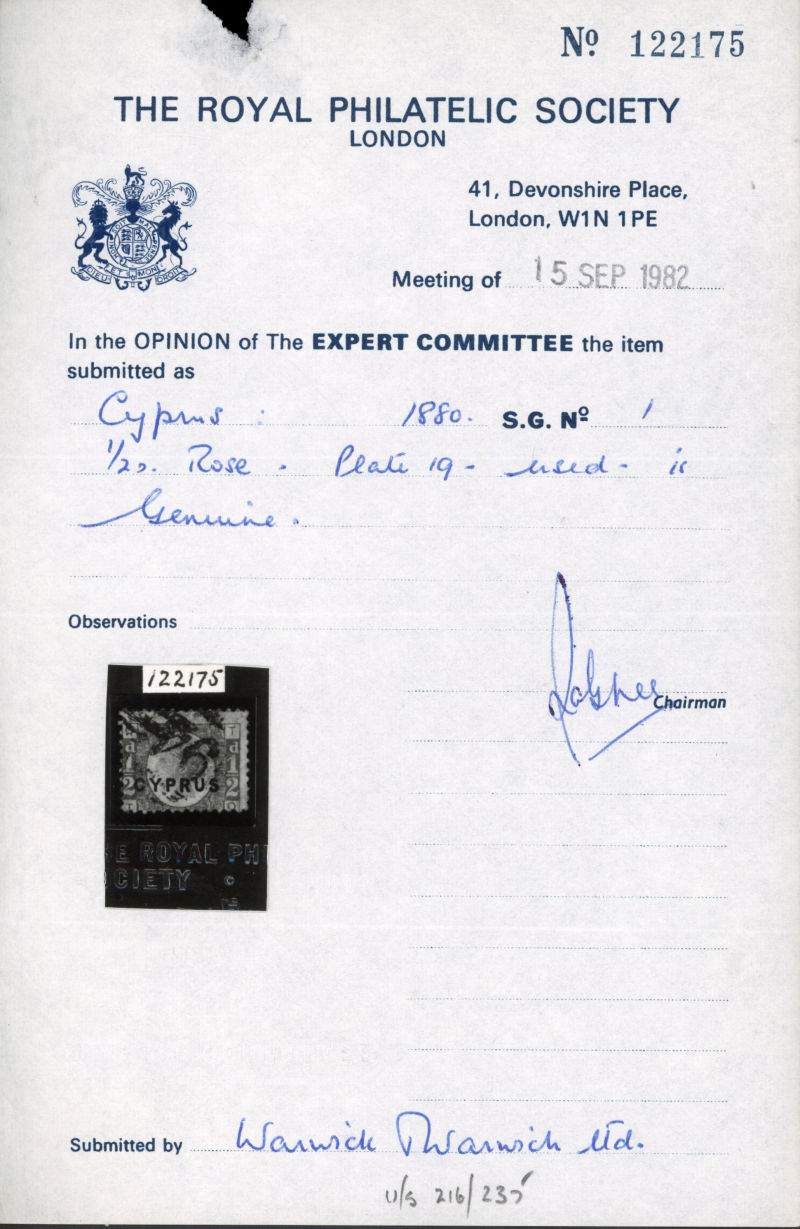 Nº 122175
THE ROYAL PHILATELIC SOCIETY
LONDON
41, Devonshire Place,
London, W1N 1PE
Meeting of 15 SEP 1982
In the OPINION of The EXPERT COMMITTEE the item
submitted as
Cyprus : 1880. S.G. Nº 1
1/2d. Rose. Plate 19 - used - is
Genuine.
Observations
122175
CYPRUS
E ROYAL PHI
OCIETY
Chairman
Submitted by Warwick & Warwick Ltd.
u/s 216/235